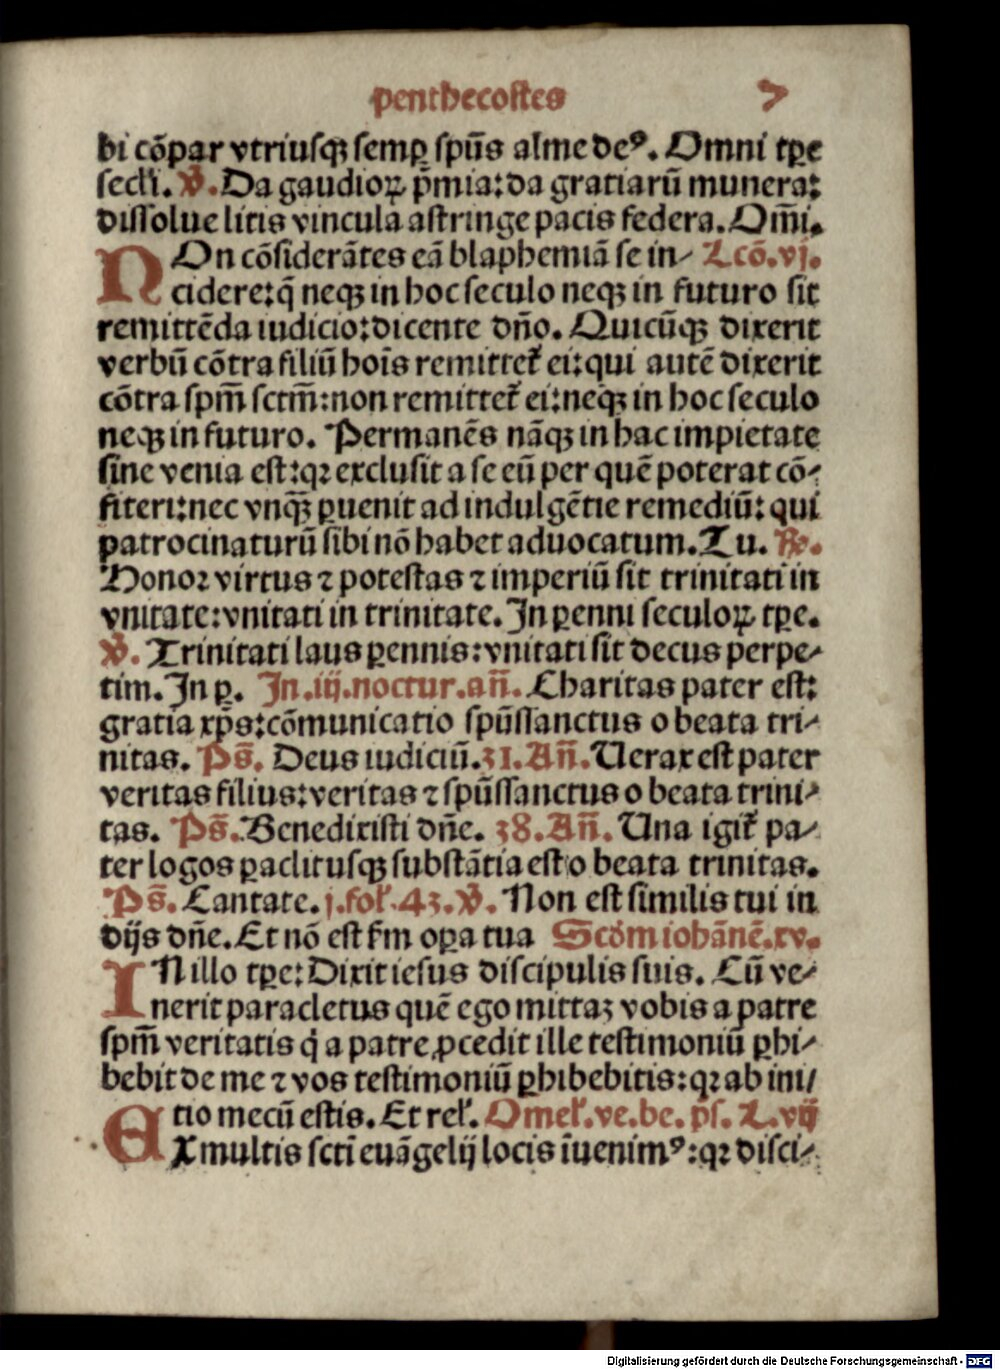 penthecostes 7
bi cōpar vtriusqꝫ semꝑ spūs alme deꝰ. Omni tꝑe
secli. ℣. Da gaudioꝝ p̄mia: da gratiarū munera:
dissolue litis vincula astringe pacis federa. Om̄i.
NOn cōsiderātes eā blaphemiā se in⸗ Lcō.vj.
cidere: q̄ neqꝫ in hoc seculo neqꝫ in futuro sit
remittēda iudicio: dicente dn̄o. Quicūqꝫ dixerit
verbū cōtra filiū hoīs remittet᷑ ei: qui autē dixerit
cōtra spm̄ sctm̄: non remittet᷑ ei: neqꝫ in hoc seculo
neqꝫ in futuro. Permanēs nāqꝫ in hac impietate
sine venia est: qꝛ exclusit a se eū per quē poterat cō⸗
fiteri: nec vnqꝫ̄ ꝑuenit ad indulgētie remediū: qui
patrocinaturū sibi nō habet aduocatum. Tu. ℟.
Honoꝛ virtus ⁊ potestas ⁊ imperiū sit trinitati in
vnitate: vnitati in trinitate. In ꝑenni seculoꝝ tꝑe.
℣. Trinitati laus ꝑennis: vnitati sit decus perpe⸗
tim. In ꝑ. In .iij. noctur. an̄. Charitas pater est:
gratia xp̄s: cōmunicatio spūssanctus o beata tri⸗
nitas. Ps̄. Deus iudiciū. 31. An̄. Uerax est pater
veritas filius: veritas ⁊ spūssanctus o beata trini⸗
tas. Ps̄. Benedixisti dn̄e. 38. An̄. Una igit᷑ pa⸗
ter logos ꝑaclitusqꝫ substātia est o beata trinitas.
Ps̄. Cantate. j. fol᷑. 43. ℣. Non est similis tui in
dijs dn̄e. Et nō est s̄m oꝑa tua Scd̄m iohānē. xv.
IN illo tꝑe: Dixit iesus discipulis suis. Cū ve⸗
nerit paracletus quē ego mittaꝫ vobis a patre
spm̄ veritatis q̇ a patre ꝓcedit ille testimoniū ꝑhi⸗
bebit de me ⁊ vos testimoniū ꝑhibebitis: qꝛ ab ini⸗
tio mecū estis. Et rel᷑. Omel᷑. ve. be. p̄s. L. vij
EX multis scti euāgelij locis īuenimꝰ: qꝛ disci⸗
Digitalisierung gefördert durch die Deutsche Forschungsgemeinschaft - DFG